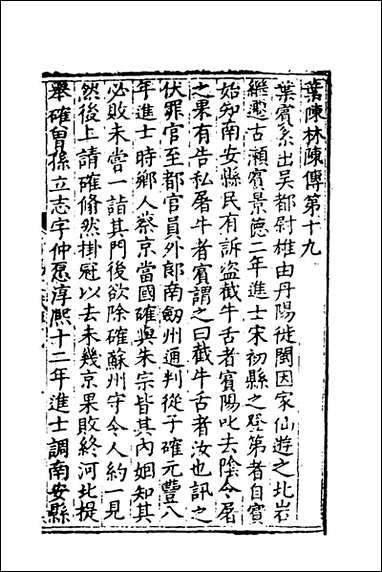 葉陳林陳傳第十九
葉賓系出吳都尉雄由丹陽徙閩因家仙遊之北岩
繼遷古瀨賓景德二年進士宋初縣之登第者自賓
始知南安縣民有訴盜截牛舌者賓陽叱去陰令屠
之果有告私屠牛者賓謂之曰截牛舌者汝也訊之
伏罪官至都官員外郎南劒州通判從子確元豐八
年進士時鄉人蔡京當國確與朱宗皆其內姻知其
必敗未嘗一詣其門後欲除確蘇州守令人約一見
然後上請確翛然掛冠以去未幾京果敗終河北提
舉確曾孫立志字仲愿淳熙十二年進士調南安縣